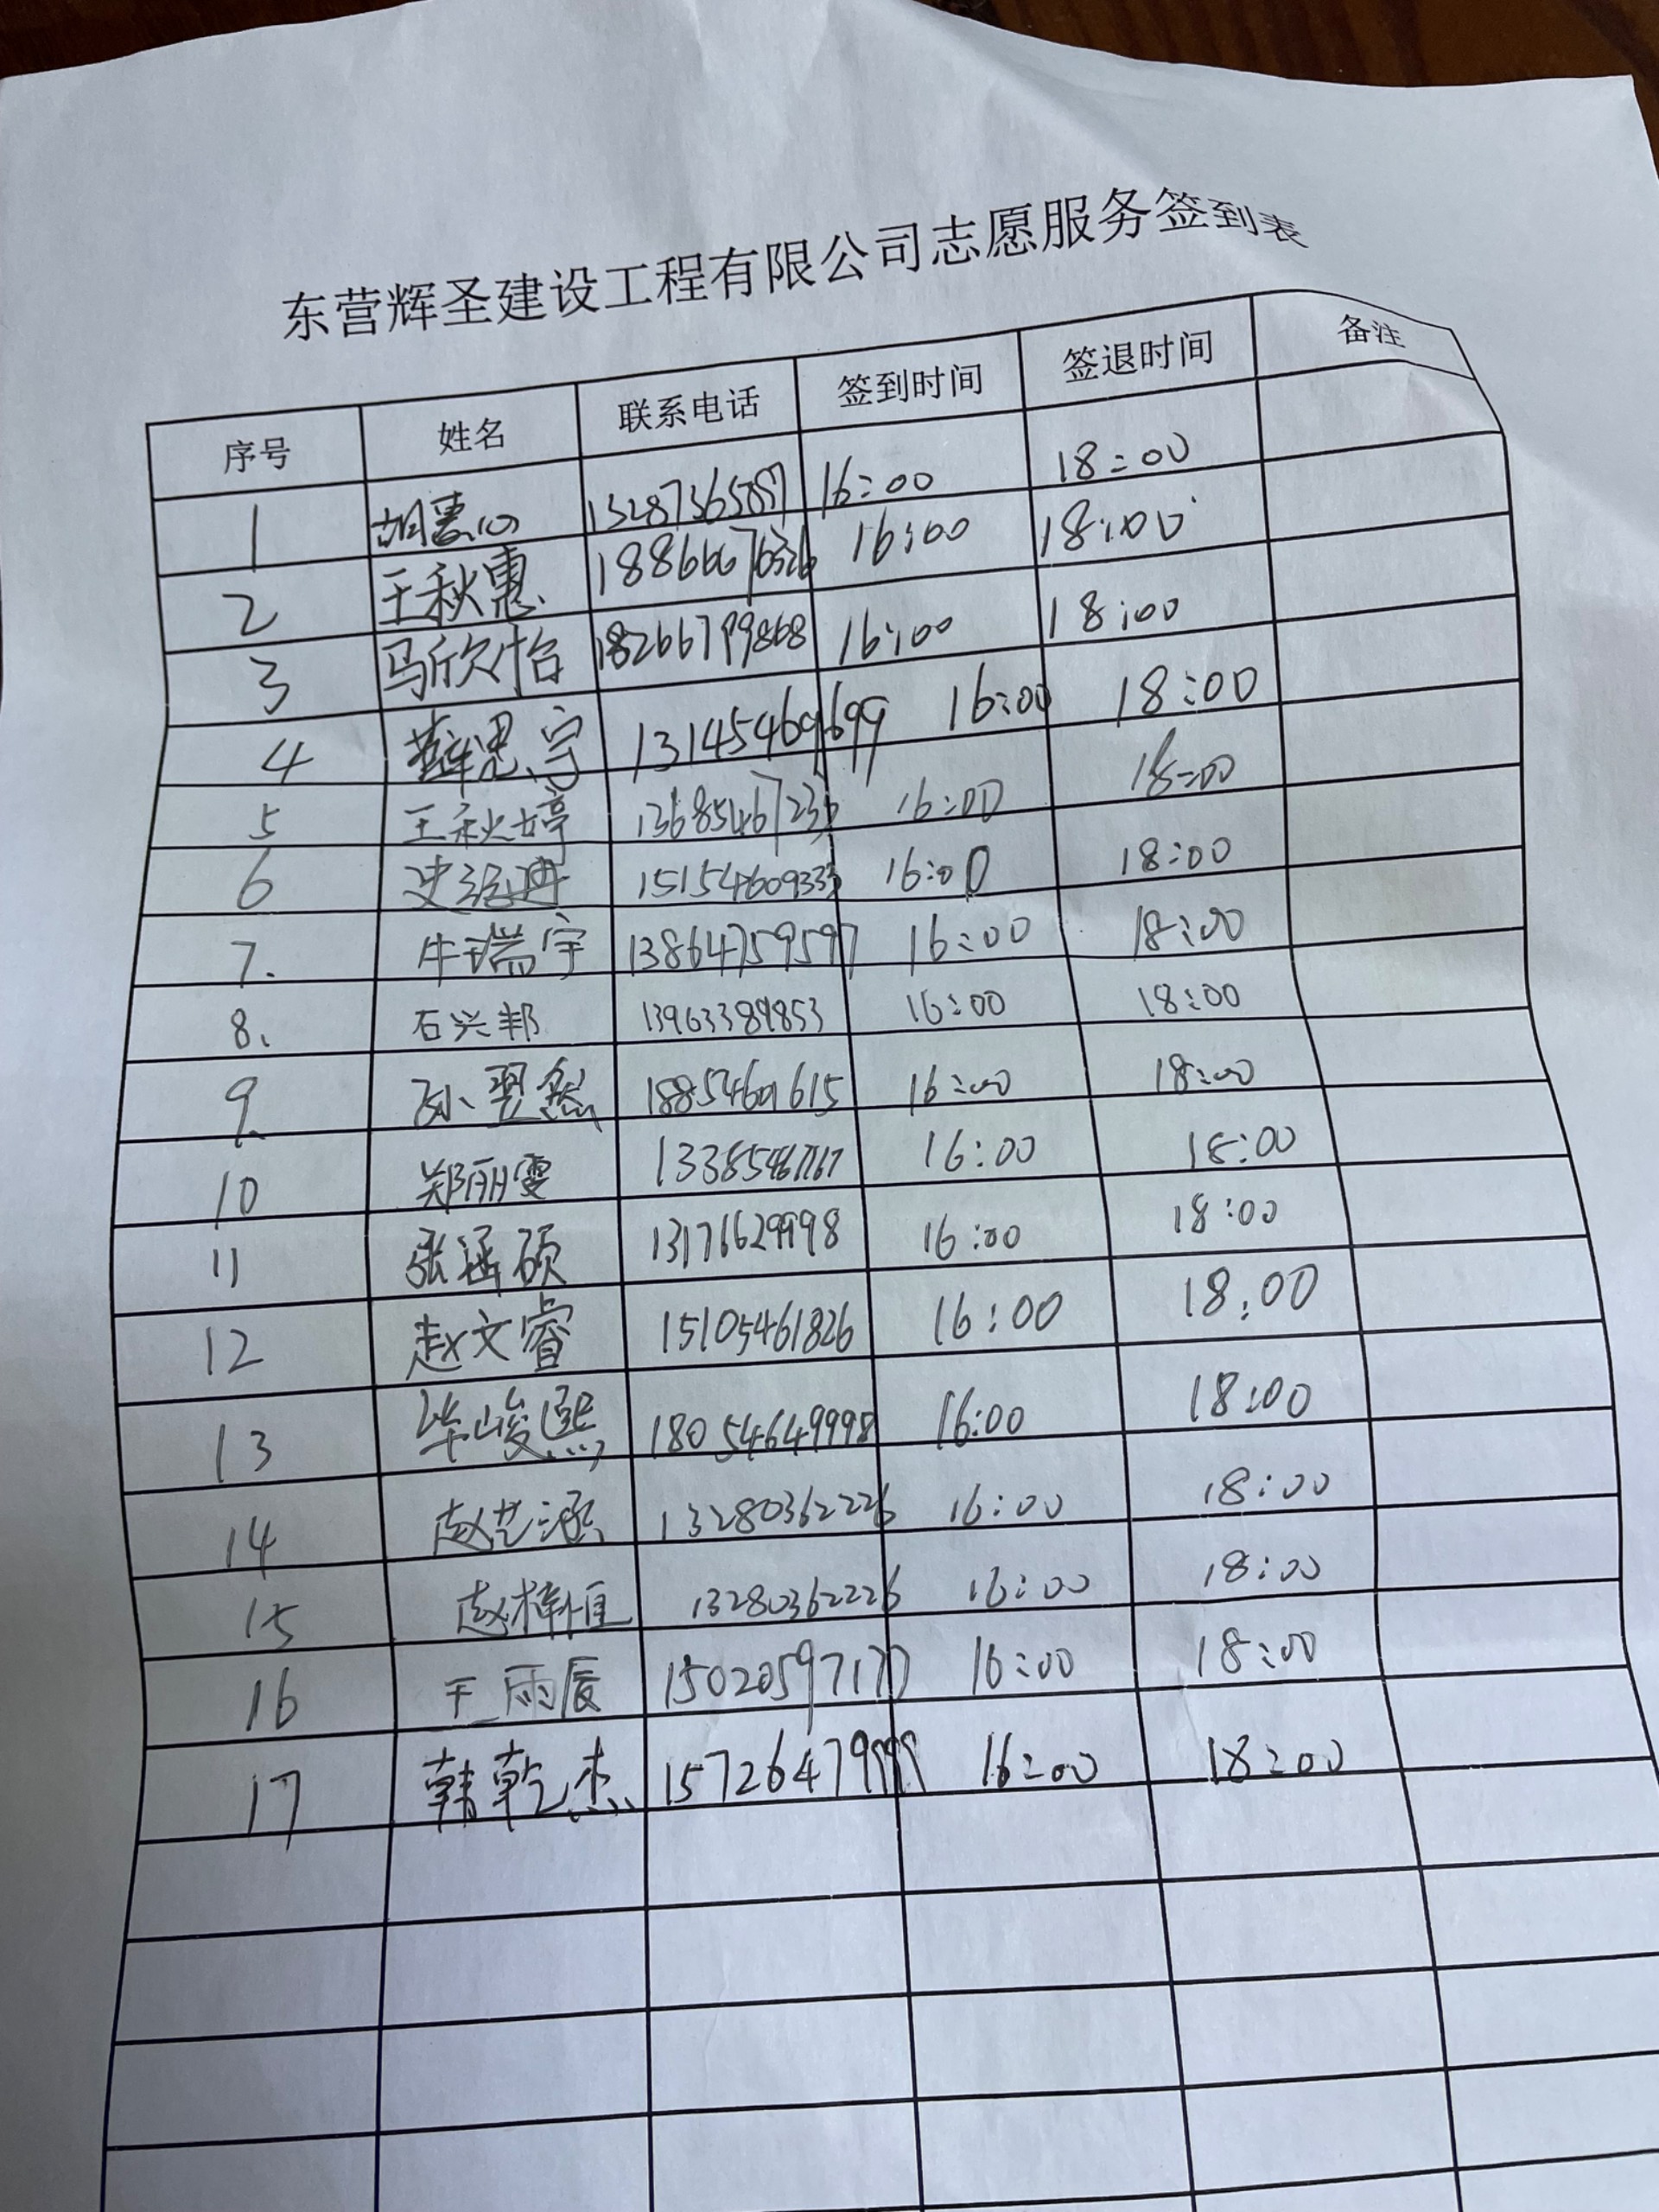 东营辉圣建设工程有限公司志愿服务签到表
序号 姓名 联系电话 签到时间 签退时间 备注
1 胡惠心 16:00 18:00
2 王秋惠 18866676326 16:00 18:00
3 马欣怡 18266799868 16:00 18:00
4 薛思宇 13145469699 16:00 18:00
5 王秋婷 13685467233 16:00 18:00
6 15154609333 16:00 18:00
7. 牛瑞宇 13864759597 16:00 18:00
8. 石兴邦 13963389853 16:00 18:00
9. 孙翌然 16:00 18:00
10 郑丽雯 13385467167 16:00 18:00
11 张涵硕 13176629998 16:00 18:00
12 赵文睿 15105461826 16:00 18:00
13 毕峻熙 18054649998 16:00 18:00
14 赵艺涵 13280362226 16:00 18:00
15 赵梓恒 13280362226 16:00 18:00
16 王雨辰 15020597177 16:00 18:00
17 韩乾杰 15726479999 16:00 18:00